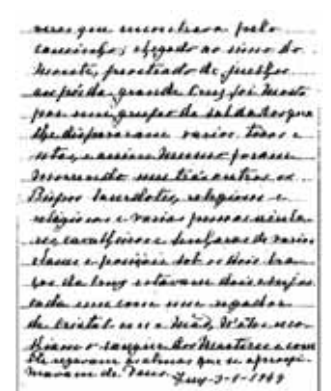 veras que encontrava pelo
caminho; chegado ao cimo do
monte, prostrado de juelhos
aos pés da grande Cruz foi morto
por um grupo de soldados que
lhe dispararam varios tiros e
setas, e assim mesmo foram
morrendo uns trás outros os
Bispos Sacerdotes, religiosos e
religiosas e varias pessoas secula-
res, cavalheiros e senhoras de varias
classes e posições. Sob os dois bra-
ços da Cruz estavam dois Anjos
cada um com um regador
de cristal em a mão, n'eles reco-
lhiam o sangue dos Martires e com
ele regavam as almas que se aproxi-
mavam de Deus.
Tuy-3-1-1944